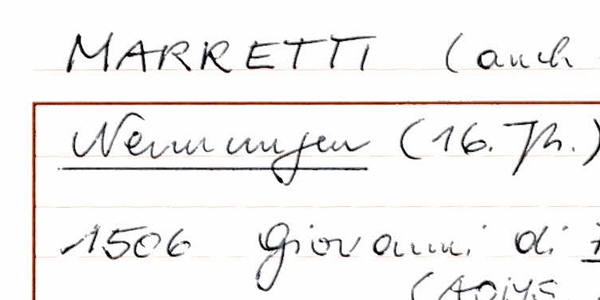 MARRETTI (auch
Nennungen (16. Jh.)
1506 Giovanni di